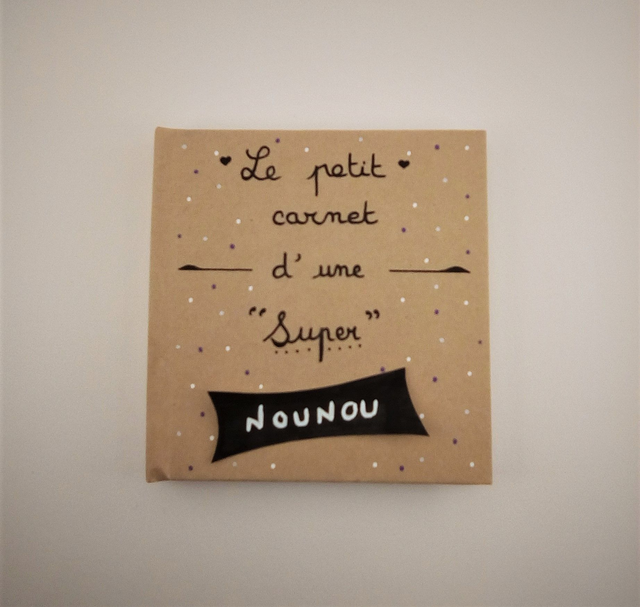 Le petit
carnet
d' une
“Super”
NOUNOU